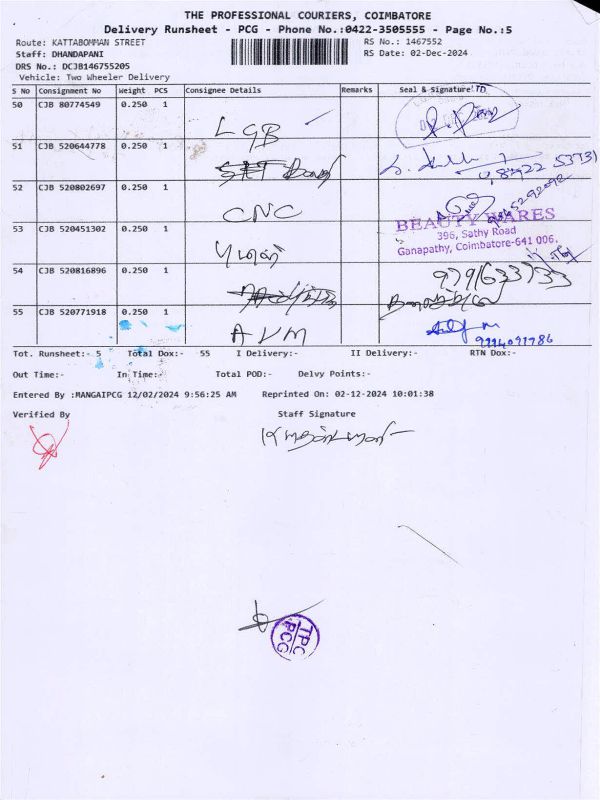 THE PROFESSIONAL COURIERS, COIMBATORE
Delivery Runsheet - PCG - Phone No.:0422-3505555 - Page No.:5
Route: KATTABOMMAN STREET
RS No.: 1467552
Staff: DHANDAPANI
RS Date: 02-Dec-2024
DRS No.: DCJB146755205
Vehicle: Two Wheeler Delivery
S No Consignment No Weight PCS Consignee Details Remarks Seal & Signature
50 CJB 80774549 0.250 1
LGB
51 CJB 520644778 0.250 1
52 CJB 520802697 0.250 1
CNC
53 CJB 520451302 0.250 1
BEAUTY WARES
396, Sathy Road
Ganapathy, Coimbatore-641 006.
54 CJB 520816896 0.250 1
9791633733
55 CJB 520771918 0.250 1
AVM
Tot. Runsheet:- 5 Total Dox:- 55 I Delivery:- II Delivery:- RTN Dox:-
Out Time:- In Time:- Total POD:- Delvy Points:-
Entered By :MANGAIPCG 12/02/2024 9:56:25 AM Reprinted On: 02-12-2024 10:01:38
Verified By Staff Signature
TPC
PCG